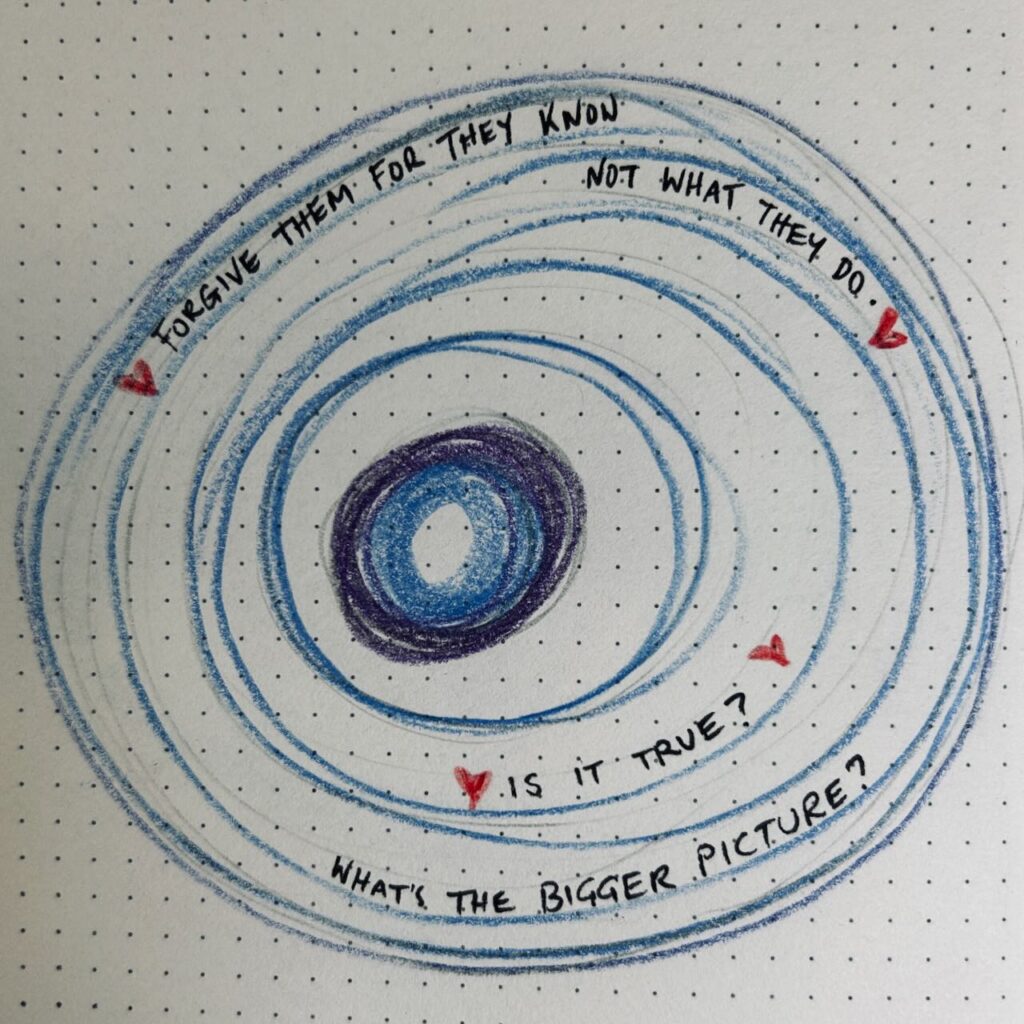 FORGIVE THEM FOR THEY KNOW
NOT WHAT THEY DO.
IS IT TRUE?
WHAT'S THE BIGGER PICTURE?